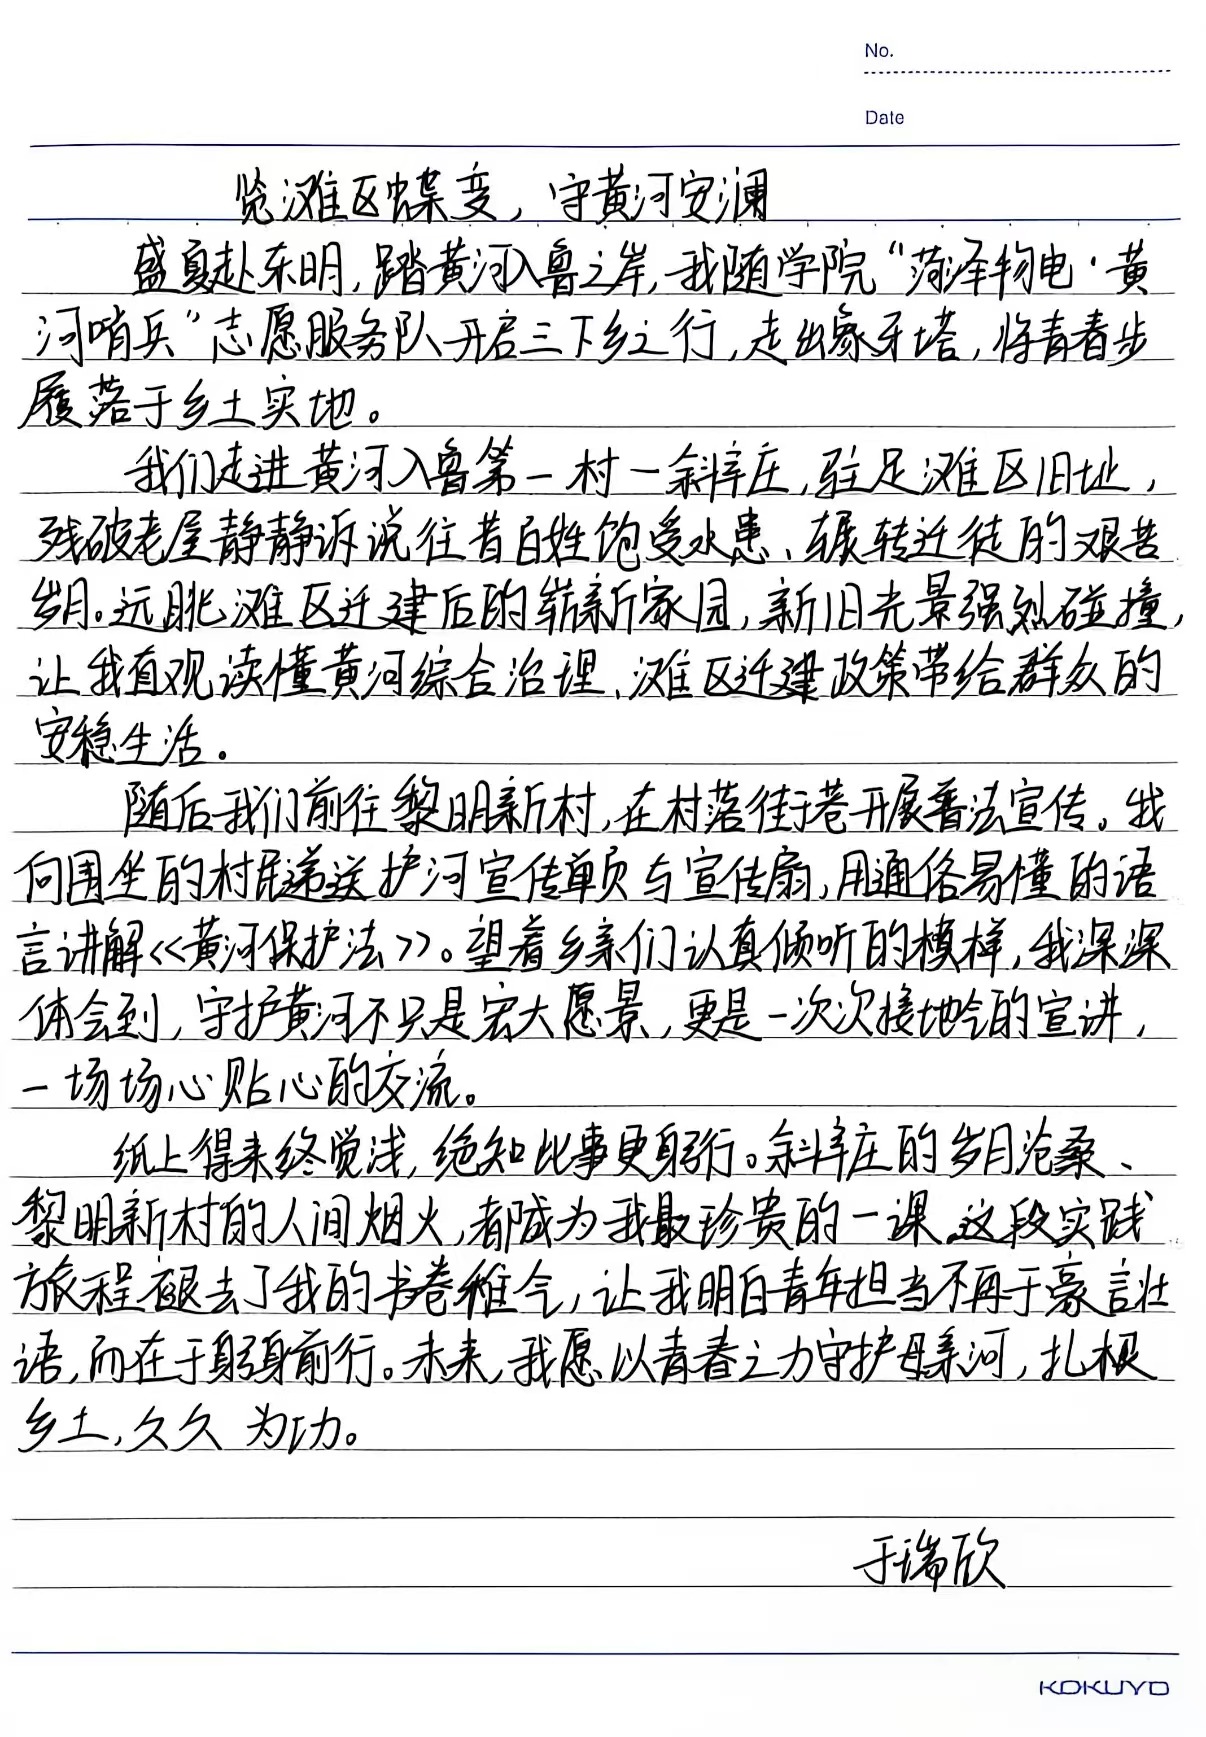 No.
Date
览滩区蝶变，守黄河安澜
盛夏赴东明，踏黄河入鲁之岸，我随学院“菏泽物电·黄
河哨兵”志愿服务队开启三下乡之行，走出象牙塔，将青春步
履落于乡土实地。
我们走进黄河入鲁第一村—斜庄，驻足滩区旧址，
残破老屋静静诉说往昔百姓饱受水患、辗转迁徒的艰苦
岁月。远眺滩区迁建后的崭新家园，新旧光景强烈碰撞，
让我直观读懂黄河综合治理、滩区迁建政策带给群众的
安稳生活。
随后我们前往黎明新村，在村落街巷开展普法宣传。我
向围坐的村民递送护河宣传单页与宣传扇，用通俗易懂的语
言讲解《黄河保护法》。望着乡亲们认真倾听的模样，我深深
体会到，守护黄河不只是宏大愿景，更是一次次接地气的宣讲，
一场场心贴心的交流。
纸上得来终觉浅，绝知此事更躬行。斜庄的岁月沧桑、
黎明新村的人间烟火，都成为我最珍贵的一课。这段实践
旅程褪去了我的书卷稚气，让我明白青年担当不再于豪言壮
语，而在于躬身前行。未来，我愿以青春之力守护母亲河，扎根
乡土，久久为功。
于瑞欣
KOKUYO